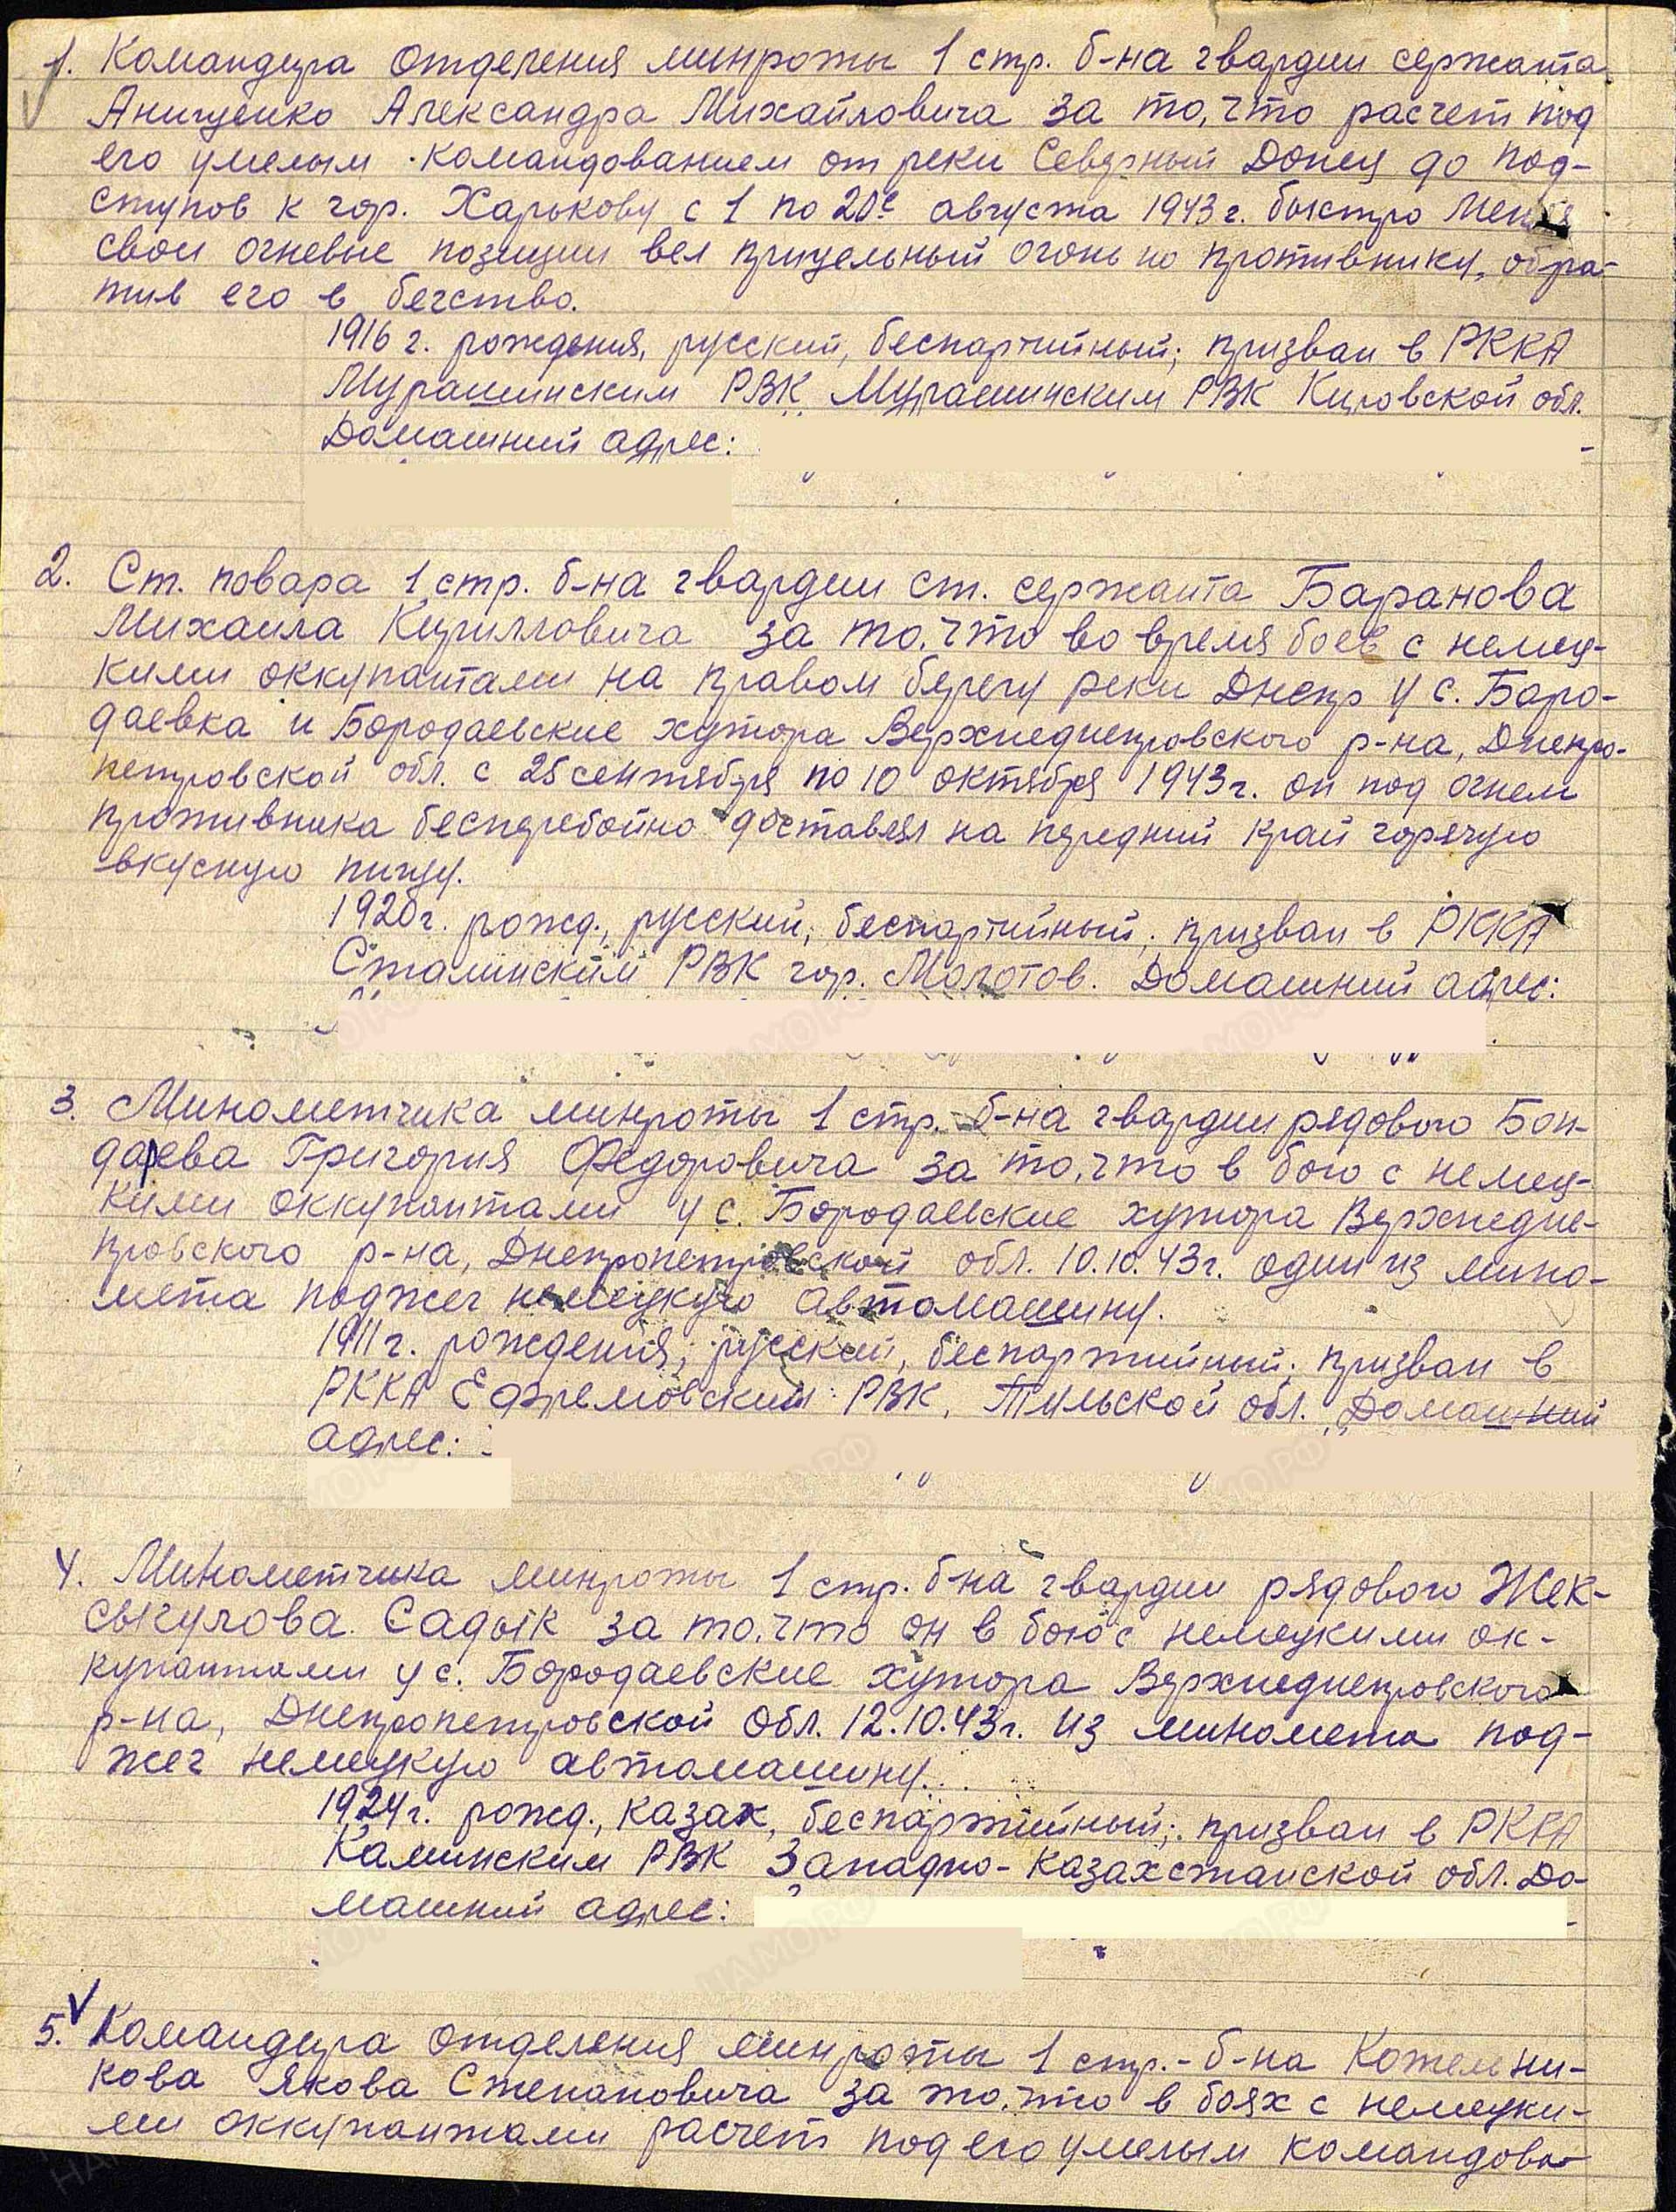 1. Командира отделения минроты 1 стр. б-на гвардии сержанта
Анищенко Александра Михайловича за то, что расчет под
его умелым командованием от реки Северный Донец до под-
ступов к гор. Харькову с 1 по 20е августа 1943 г. быстро меняя
свои огневые позиции вел прицельный огонь по противнику, обра-
тив его в бегство.
1916 г. рождения, русский, беспартийный; призван в РККА
Мурашинским РВК Мурашинским РВК Кировской обл.
Домашний адрес:
2. Ст. повара 1 стр. б-на гвардии ст. сержанта Баранова
Михаила Кирилловича за то, что во время боев с немец-
кими оккупантами на правом берегу реки Днепр у с. Баро-
даевка и Бородаевские хутора Верхнеднепровского р-на, Днепро-
петровской обл. с 25 сентября по 10 октября 1943 г. он под огнем
противника бесперебойно доставлял на передний край горячую
вкусную пищу.
1920 г. рожд., русский, беспартийный; призван в РККА
Сталинским РВК гор. Молотов. Домашний адрес:
3. Минометчика минроты 1 стр. б-на гвардии рядового Бон-
дарева Григория Федоровича за то, что в бою с немец-
кими оккупантами у с. Бородаевские хутора Верхнедне-
провского р-на, Днепропетровской обл. 10.10.43 г. один из мино-
мета поджег немецкую автомашину.
1911 г. рождения, русский, беспартийный; призван в
РККА Ефремовским РВК, Тульской обл. Домашний
адрес:
4. Минометчика минроты 1 стр. б-на гвардии рядового Жек-
сыкулова Садык за то, что он в бою с немецкими ок-
купантами у с. Бородаевские хутора Верхнеднепровского
р-на, Днепропетровской обл. 12.10.43 г. из миномета под-
жег немецкую автомашину.
1924 г. рожд., казах, беспартийный; призван в РККА
Каминским РВК Западно-Казахстанской обл. До-
машний адрес:
5. Командира отделения минроты 1 стр. - б-на Кожевни-
кова Якова Степановича за то, что в боях с немецки-
ми оккупантами расчет под его умелым командова-